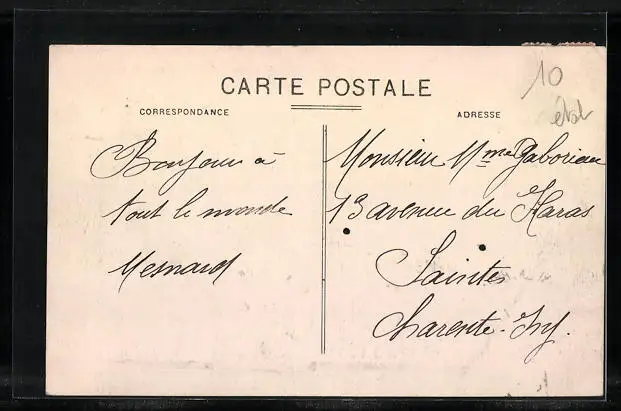 CARTE POSTALE
CORRESPONDANCE
ADRESSE
10
Bonjour à
tout le monde
Mesnard
Monsieur Mme Gaboriau
13 avenue du Haras
Saintes
Charente-Inf.